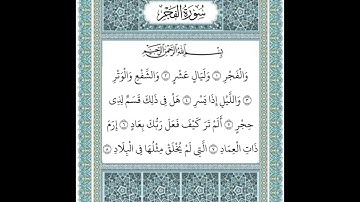 سُورَةُ الفَجْرِ
بِسْمِ اللَّهِ الرَّحْمَٰنِ الرَّحِيمِ
وَالْفَجْرِ ١ وَلَيَالٍ عَشْرٍ ٢ وَالشَّفْعِ وَالْوَتْرِ
٣ وَاللَّيْلِ إِذَا يَسْرِ ٤ هَلْ فِي ذَٰلِكَ قَسَمٌ لِّذِي
حِجْرٍ ٥ أَلَمْ تَرَ كَيْفَ فَعَلَ رَبُّكَ بِعَادٍ ٦ إِرَمَ
ذَاتِ الْعِمَادِ ٧ الَّتِي لَمْ يُخْلَقْ مِثْلُهَا فِي الْبِلَادِ ٨